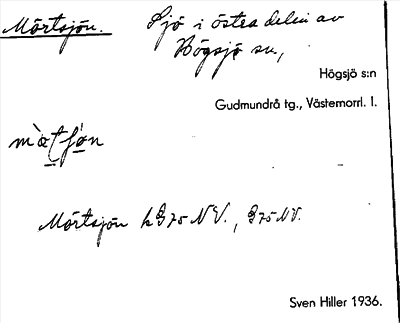 Mörtsjön.
Sjö i östra delen av
Högsjö sn,
Högsjö s:n
Gudmundrå tg., Västernorrl. l.
Mörtsjön
Sven Hiller 1936.